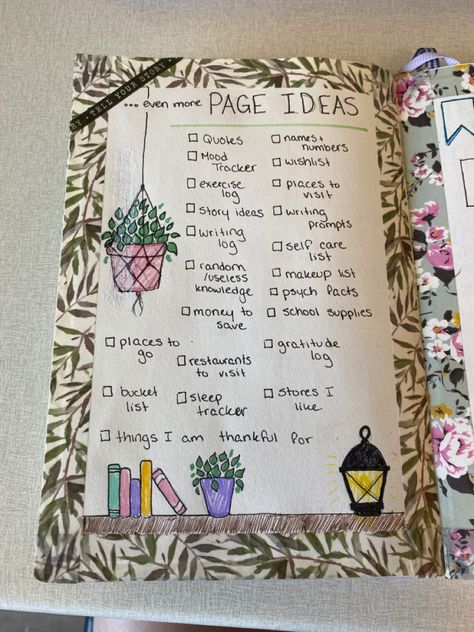 RY · TELL YOUR STORY ·
...even more PAGE IDEAS
☐ Quotes
☐ Mood
Tracker
☐ exercise
log
☐ story ideas
☐ writing
log
☐ random
/useless
knowledge
☐ money to
save
☐ names +
numbers
☐ wishlist
☐ places to
visit
☐ writing
prompts
☐ self care
list
☐ makeup list
☐ psych facts
☐ school supplies
☐ places to
go
☐ restaurants
to visit
☐ gratitude
log
☐ bucket
list
☐ sleep
tracker
☐ stores I
like
☐ things I am thankful for